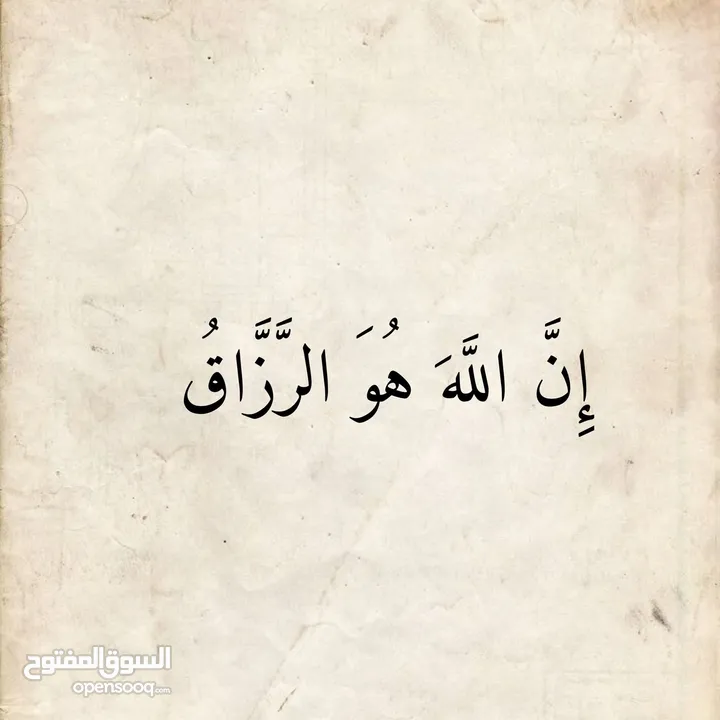 إِنَّ اللَّهَ هُوَ الرَّزَّاقُ
السوق المفتوح
opensooq.com